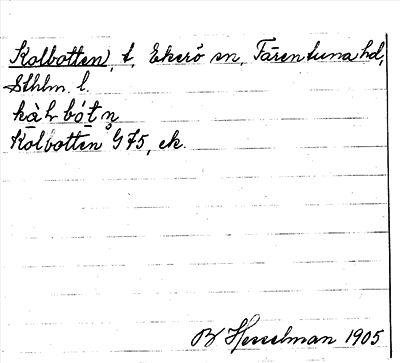 Kolbotten, t, Ekerö sn, Färentuna hd,
Sthlm. l.
Kolbotten G 75, ek.
B Hesselman 1905